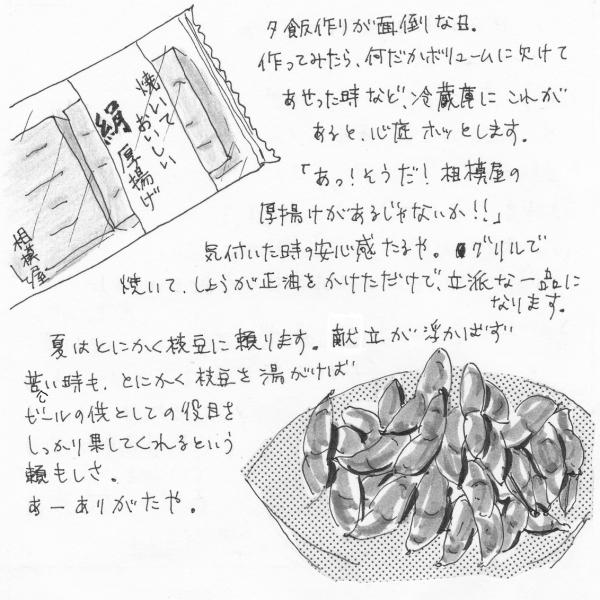 夕飯作りが面倒な日。
作ってみたら、何だかボリュームに欠けて
あせった時など、冷蔵庫にこれが
あると、心底ホッとします。
「あっ!そうだ!相模屋の
厚揚げがあるじゃないか!!」
気付いた時の安心感たるや。グリルで
焼いて、しょうが正油をかけただけで、立派な一品に
なります。
焼いておいしい
絹厚揚げ
相模屋
夏はとにかく枝豆に頼ります。献立が浮かばず
苦しい時も、とにかく枝豆を湯がけば
ビールの供としての役目を
しっかり果してくれるという
頼もしさ。
あーありがたや。